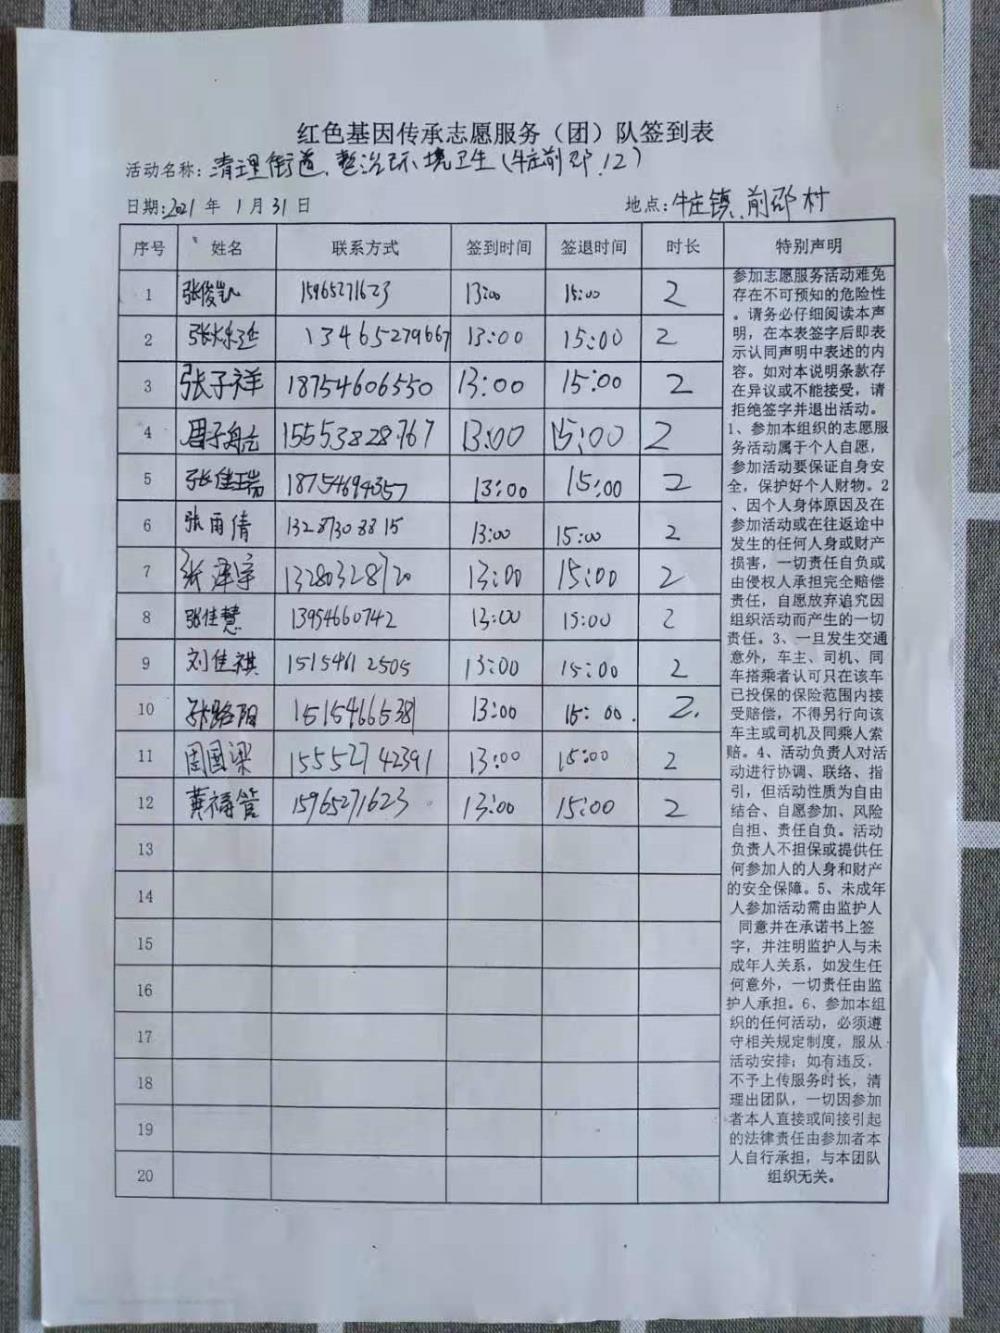 红色基因传承志愿服务（团）队签到表
活动名称：清理街道、整治环境卫生（牛庄前邵、12）
日期：2021 年 1 月 31 日 地点：牛庄镇、前邵村
序号 姓名 联系方式 签到时间 签退时间 时长 特别声明
1 张俊凯 15965271623 13:00 15:00 2
2 13465279667 13:00 15:00 2
3 张子祥 18754606550 13:00 15:00 2
4 周子航 15553828767 13:00 15:00 2
5 张佳瑞 18754694357 13:00 15:00 2
6 张雨倩 13287308815 13:00 15:00 2
7 张泽宇 13280328120 13:00 15:00 2
8 张佳慧 13954660742 13:00 15:00 2
9 刘佳祺 15154612505 13:00 15:00 2
10 张路阳 15154665381 13:00 15:00. 2.
11 周国梁 15552742391 13:00 15:00 2
12 黄福管 15965271623 13:00 15:00 2
13
14
15
16
17
18
19
20
参加志愿服务活动难免
存在不可预知的危险性
。请务必仔细阅读本声
明，在本表签字后即表
示认同声明中表述的内
容。如对本说明条款存
在异议或不能接受，请
拒绝签字并退出活动。
1、参加本组织的志愿服
务活动属于个人自愿，
参加活动要保证自身安
全，保护好个人财物。2
、因个人身体原因及在
参加活动或在往返途中
发生的任何人身或财产
损害，一切责任自负或
由侵权人承担完全赔偿
责任，自愿放弃追究因
组织活动而产生的一切
责任。3、一旦发生交通
意外，车主、司机、同
车搭乘者认可只在该车
已投保的保险范围内接
受赔偿，不得另行向该
车主或司机及同乘人索
赔。4、活动负责人对活
动进行协调、联络、指
引，但活动性质为自由
结合、自愿参加、风险
自担、责任自负。活动
负责人不担保或提供任
何参加人的人身和财产
的安全保障。5、未成年
人参加活动需由监护人
同意并在承诺书上签
字，并注明监护人与未
成年人关系，如发生任
何意外，一切责任由监
护人承担。6、参加本组
织的任何活动，必须遵
守相关规定制度，服从
活动安排；如有违反，
不予上传服务时长，清
理出团队，一切因参加
者本人直接或间接引起
的法律责任由参加者本
人自行承担，与本团队
组织无关。